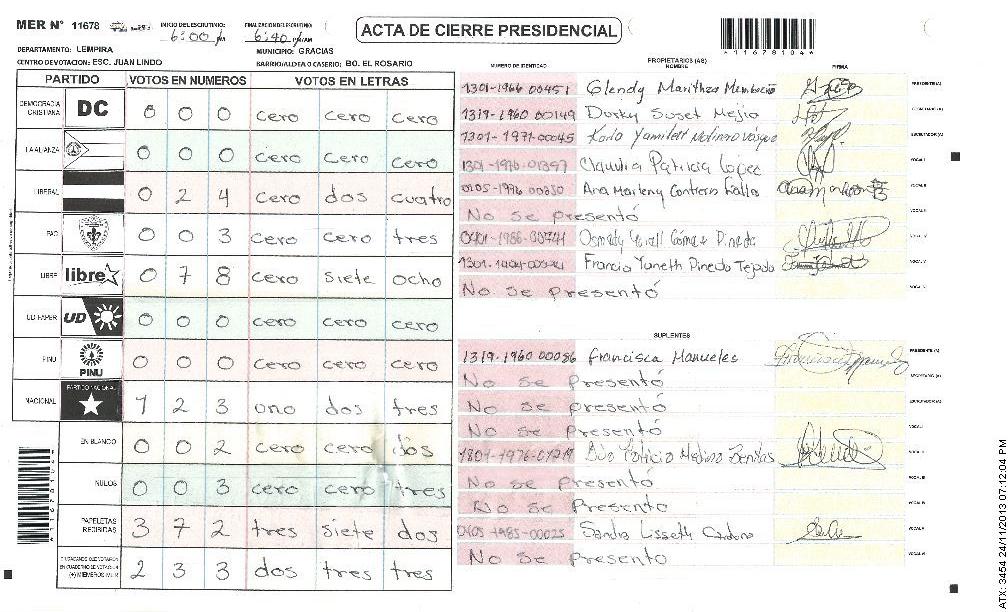 MER N° 11678 INICIO DE ESCRUTINIO: 6:00 pm FINALIZACION DE ESCRUTINIO: 6:40 pm ACTA DE CIERRE PRESIDENCIAL
DEPARTAMENTO: LEMPIRA MUNICIPIO: GRACIAS
CENTRO DE VOTACION: ESC. JUAN LINDO BARRIO/ALDEA O CASERIO: BO. EL ROSARIO
PARTIDO VOTOS EN NUMEROS VOTOS EN LETRAS
DEMOCRACIA CRISTIANA DC 0 0 0 cero cero cero
LA ALIANZA 0 0 0 cero cero cero
LIBERAL 0 2 4 cero dos cuatro
PAC 0 0 3 cero cero tres
LIBRE libre 0 7 8 cero siete ocho
UD FAPER UD 0 0 0 cero cero cero
PINU PINU 0 0 0 cero cero cero
NACIONAL PARTIDO NACIONAL 1 2 3 uno dos tres
EN BLANCO 0 0 2 cero cero dos
NULOS 0 0 3 cero cero tres
PAPELETAS RECIBIDAS 3 7 2 tres siete dos
CIUDADANOS QUE VOTARON EN CUADERNO DE VOTACION (+) MIEMBROS MER 2 3 3 dos tres tres
PROPIETARIOS (AS)
NUMERO DE IDENTIDAD NOMBRE FIRMA
1301-1966 00451 Glendy Marithza PRESIDENTE (A)
1319-1960 00149 Dorky Suset Mejia SECRETARIO (A)
1301-1971-00045 Karla Yamileth Molinero Vasquez ESCRUTADOR (A)
1301-1976-01397 Claudia Patricia Lopez VOCAL I
0105-1976 Ana Marleny VOCAL II
No se presentó VOCAL III
0401-1988- Osmedy Gómez Pineda VOCAL IV
1301- Francis Yaneth Pinedo Tejada VOCAL V
No se presentó
SUPLENTES
1319-1960 00086 Francisca Manueles PRESIDENTE (A)
No se presentó SECRETARIO (A)
No se presentó ESCRUTADOR (A)
No se presentó VOCAL I
1801-1976- Patricia Medina VOCAL II
No se presentó VOCAL III
No se presentó VOCAL IV
0405-1985-00025 Sandra Lisseth VOCAL V
No se presentó
*11678104*
ATX: 3454 24/11/2013 07:12:04 PM